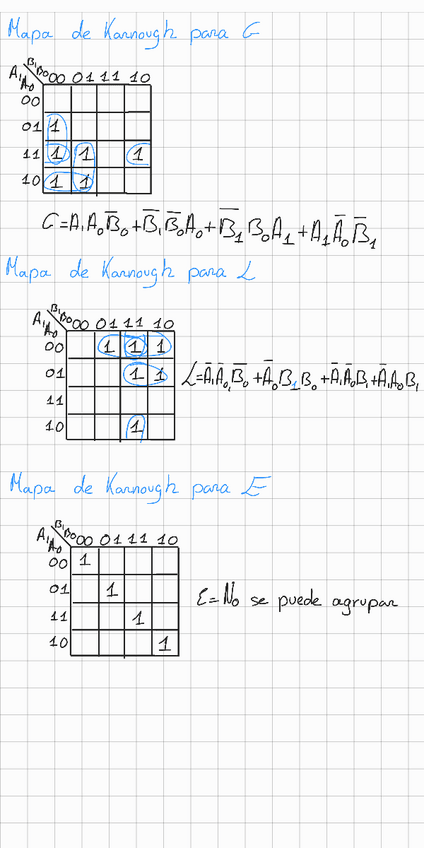 Mapa de Karnough para G
B₁B₀ 00 01 11 10
A₁A₀
00
01 1
11 1 1 1
10 1 1
G=A₁A₀B̅₀+B̅₁B̅₀A₀+B̅₁B₀A₁+A₁A̅₀B̅₁
Mapa de Karnough para L
B₁B₀ 00 01 11 10
A₁A₀
00 1 1 1
01 1 1
11
10 1
L=A̅₁A̅₀B̅₀+A̅₀B₁B₀+A̅₁A̅₀B₁+A̅₁A₀B₁
Mapa de Karnough para E
B₁B₀ 00 01 11 10
A₁A₀
00 1
01 1
11 1
10 1
E=No se puede agrupar